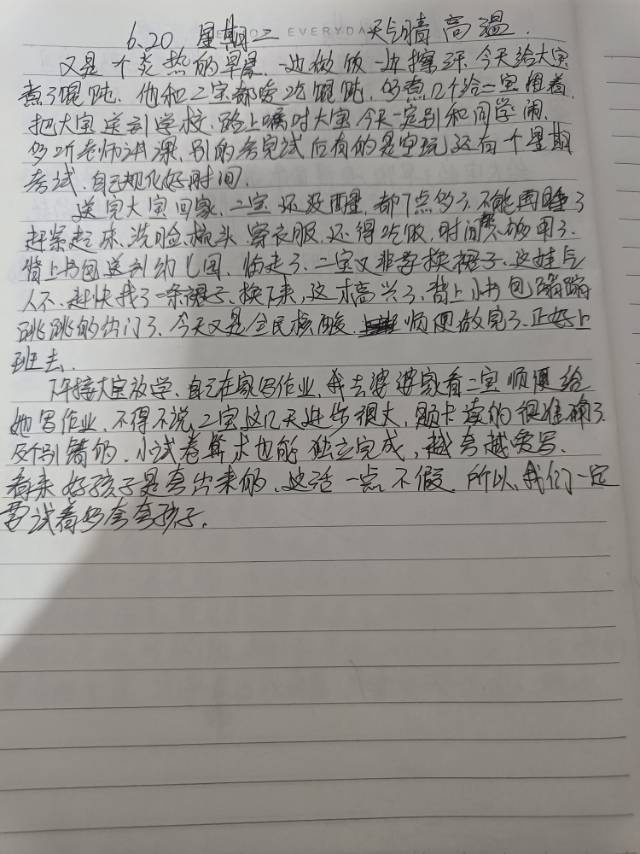 EVERYDAY
6.20 星期二 天气晴 高温.
又是一个炎热的早晨. 一边做饭一边擦汗. 今天给大宝
煮了馄饨. 他和二宝都爱吃馄饨. 多煮几个给二宝留着.
把大宝送到学校. 路上嘱咐大宝今天一定别和同学闹.
多听老师讲课. 别的考完试后有的是空玩 还有一个星期
考试. 自己规化好时间.
送完大宝回家. 二宝还没醒. 都7点多了. 不能再睡了
赶紧起床. 洗脸. 梳头. 穿衣服. 还得吃饭. 时间不够用了.
背上书包送到幼儿园. 临走了. 二宝又非要换裙子. 这娃气
人不. 赶快找了一条裙子. 换下来. 这才高兴了. 背上小书包蹦蹦
跳跳的出门了. 今天又是全民核酸. 顺便做完了. 正好上
班去.
下午接大宝放学. 自己在家写作业. 我去婆婆家看二宝顺便给
她写作业. 不得不说. 二宝这几天进步很大. 题卡读的很准确了.
个别错的. 小试卷算术也能独立完成. 越夸越爱写.
看来好孩子是夸出来的. 这话一点不假. 所以. 我们一定
要试着多夸夸孩子.